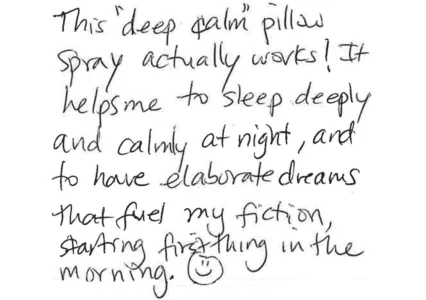 This "deep calm" pillow
spray actually works! It
helps me to sleep deeply
and calmly at night, and
to have elaborate dreams
that fuel my fiction,
starting first thing in the
morning. ☺